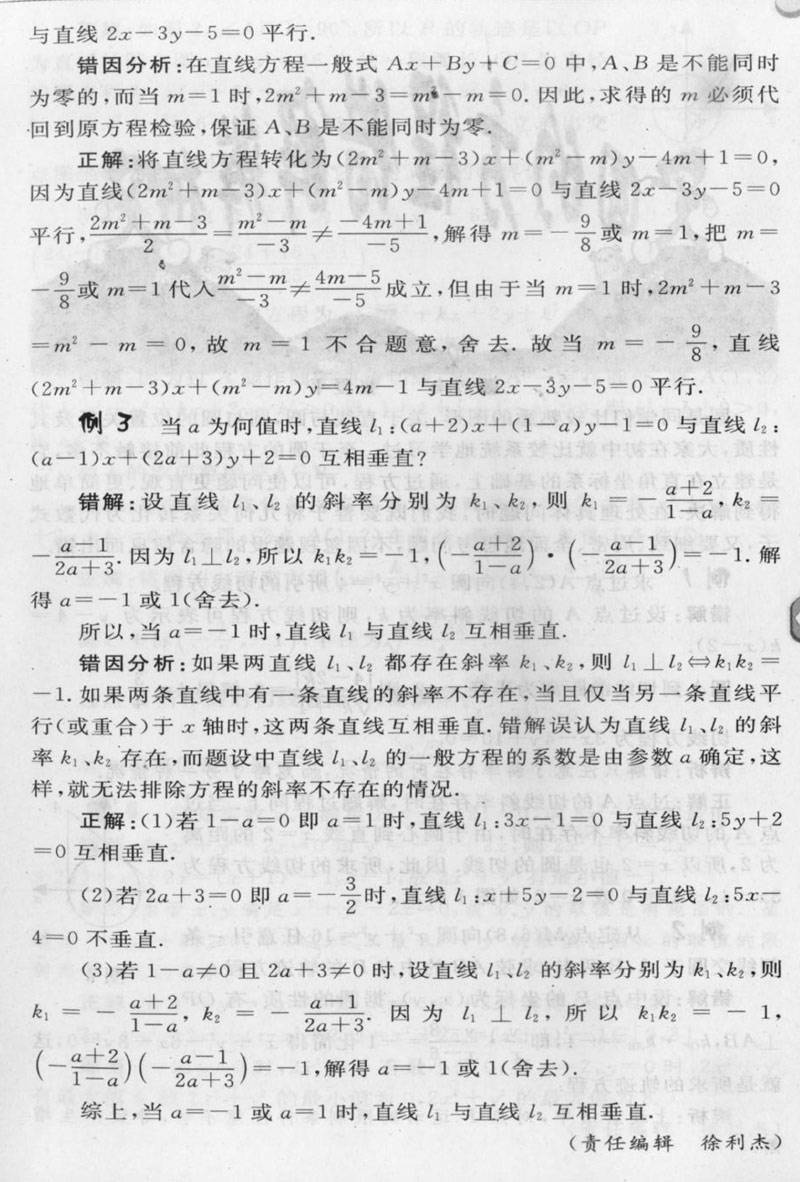 与直线 2x-3y-5=0 平行.
错因分析:在直线方程一般式 Ax+By+C=0 中,A、B 是不能同时
为零的,而当 m=1 时,2m²+m-3=m²-m=0. 因此,求得的 m 必须代
回到原方程检验,保证 A、B 是不能同时为零.
正解:将直线方程转化为(2m²+m-3)x+(m²-m)y-4m+1=0,
因为直线(2m²+m-3)x+(m²-m)y-4m+1=0 与直线 2x-3y-5=0
平行,(2m²+m-3)/2=(m²-m)/(-3)≠(-4m+1)/(-5),解得 m=-9/8或 m=1,把 m=
-9/8或 m=1代入(m²-m)/(-3)≠(4m-5)/(-5)成立,但由于当 m=1 时,2m²+m-3
=m²-m=0,故 m=1 不合题意,舍去. 故当 m=-9/8,直线
(2m²+m-3)x+(m²-m)y=4m-1 与直线 2x-3y-5=0 平行.
例 3 当 a 为何值时,直线 l₁:(a+2)x+(1-a)y-1=0 与直线 l₂:
(a-1)x+(2a+3)y+2=0 互相垂直?
错解:设直线 l₁、l₂ 的斜率分别为 k₁、k₂,则 k₁=-(a+2)/(1-a),k₂=
-(a-1)/(2a+3). 因为 l₁⊥l₂,所以 k₁k₂=-1,(-(a+2)/(1-a))·(-(a-1)/(2a+3))=-1. 解
得 a=-1 或 1(舍去).
所以,当 a=-1 时,直线 l₁ 与直线 l₂ 互相垂直.
错因分析:如果两直线 l₁、l₂ 都存在斜率 k₁、k₂,则 l₁⊥l₂⇔k₁k₂=
-1. 如果两条直线中有一条直线的斜率不存在,当且仅当另一条直线平
行(或重合)于 x 轴时,这两条直线互相垂直. 错解误认为直线 l₁、l₂ 的斜
率 k₁、k₂ 存在,而题设中直线 l₁、l₂ 的一般方程的系数是由参数 a 确定,这
样,就无法排除方程的斜率不存在的情况.
正解:(1)若 1-a=0 即 a=1 时,直线 l₁:3x-1=0 与直线 l₂:5y+2
=0 互相垂直.
(2)若 2a+3=0 即 a=-3/2时,直线 l₁:x+5y-2=0 与直线 l₂:5x-
4=0 不垂直.
(3)若 1-a≠0 且 2a+3≠0 时,设直线 l₁、l₂ 的斜率分别为 k₁、k₂,则
k₁=-(a+2)/(1-a),k₂=-(a-1)/(2a+3). 因为 l₁⊥l₂,所以 k₁k₂=-1,
(-(a+2)/(1-a))(-(a-1)/(2a+3))=-1,解得 a=-1 或 1(舍去).
综上,当 a=-1 或 a=1 时,直线 l₁ 与直线 l₂ 互相垂直.
(责任编辑 徐利杰)